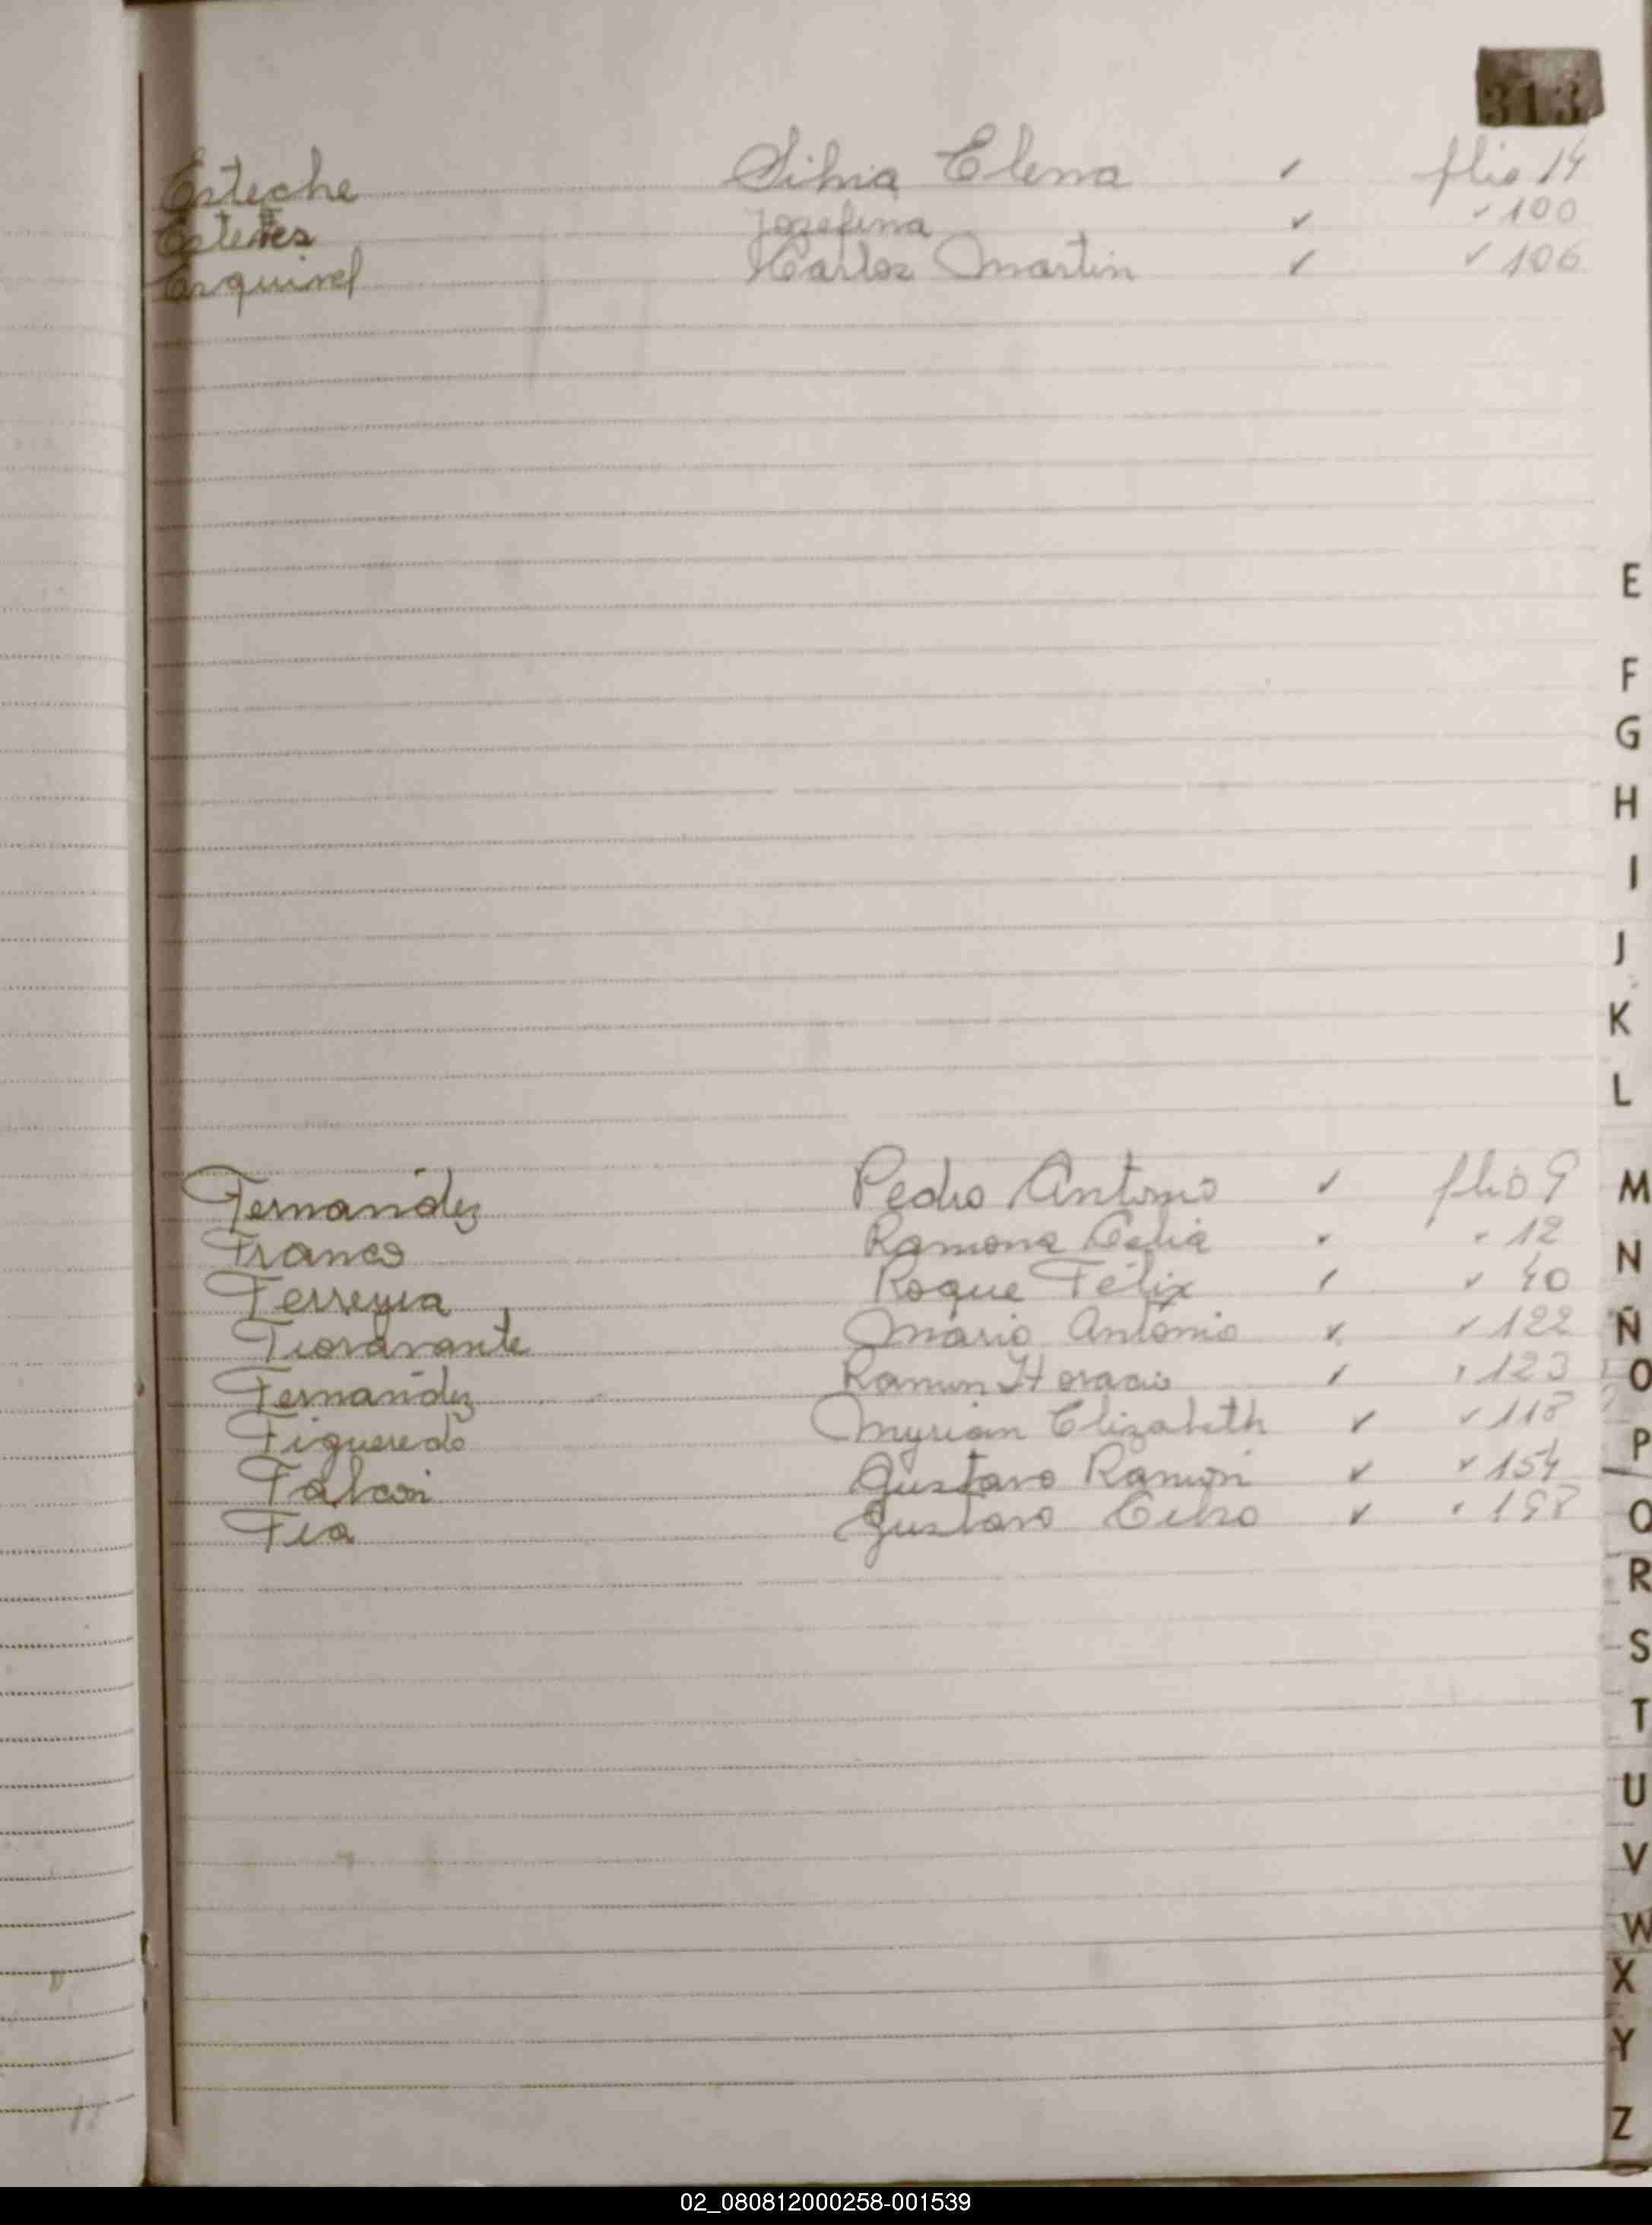 313
Esteche Silvia Elena ✓ flio 14
Esteves Josefina ✓ " 100
Esquivel Carlos Martin ✓ " 106
E
F
G
H
I
J
K
L
Fernandez Pedro Antonio ✓ flio 9
M
Franco Ramona Celia ✓ " 12
N
Ferreyra Roque Félix ✓ " 40
Fioravante Mario Antonio ✓ " 122
Ñ
Fernandez Ramon Horacio ✓ " 123
O
Figueredo Myrian Elizabeth ✓ " 118
P
Falcon Gustavo Ramon ✓ " 154
Fia Gustavo Celso ✓ " 198
Q
R
S
T
U
V
W
X
Y
Z
02_080812000258-001539